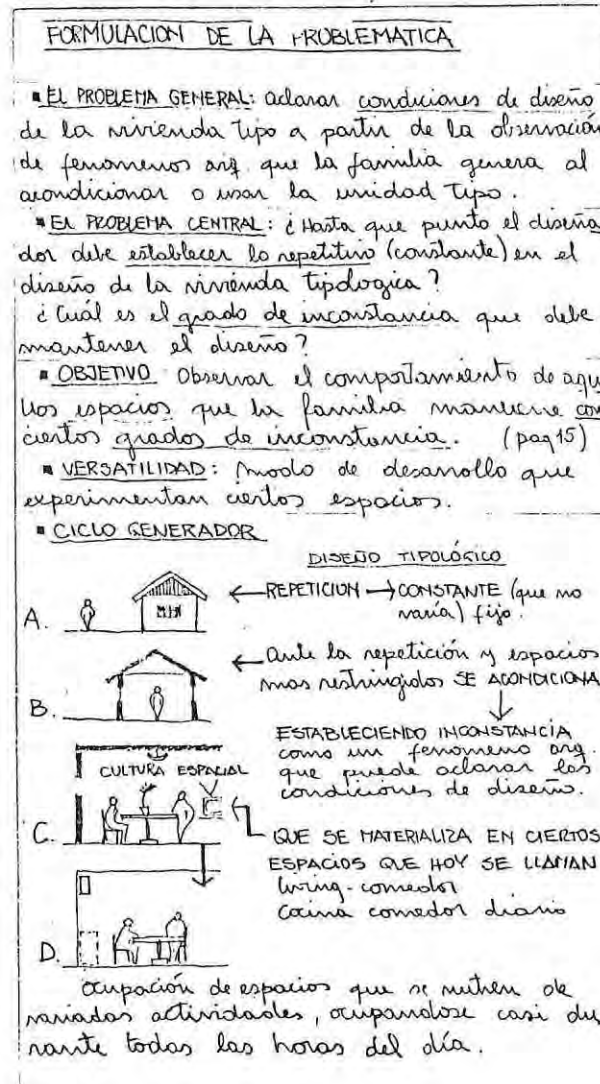 FORMULACION DE LA PROBLEMATICA
▪ EL PROBLEMA GENERAL: aclarar condiciones de diseño
de la vivienda tipo a partir de la observación
de fenomenos arq. que la familia genera al
acondicionar o usar la unidad tipo.
▪ EL PROBLEMA CENTRAL: ¿Hasta que punto el diseña
dor debe establecer lo repetitivo (constante) en el
diseño de la vivienda tipologica?
¿Cuál es el grado de inconstancia que debe
mantener el diseño?
▪ OBJETIVO Observar el comportamiento de aque
llos espacios que la familia mantiene con
ciertos grados de inconstancia. (pag 15)
▪ VERSATILIDAD: modo de desarrollo que
experimentan ciertos espacios.
▪ CICLO GENERADOR
DISEÑO TIPOLÓGICO
A. ← REPETICION → CONSTANTE (que no
varía) fijo.
B. ← Ante la repetición y espacios
mas restringidos SE ACONDICIONA
↓
ESTABLECIENDO INCONSTANCIA
como un fenomeno arq.
que puede aclarar las
condiciones de diseño.
CULTURA ESPACIAL
C. QUE SE MATERIALIZA EN CIERTOS
ESPACIOS QUE HOY SE LLAMAN
living-comedor
cocina comedor diario
D.
ocupación de espacios que se nutren de
variadas actividades, ocupandose casi du
rante todas las horas del día.